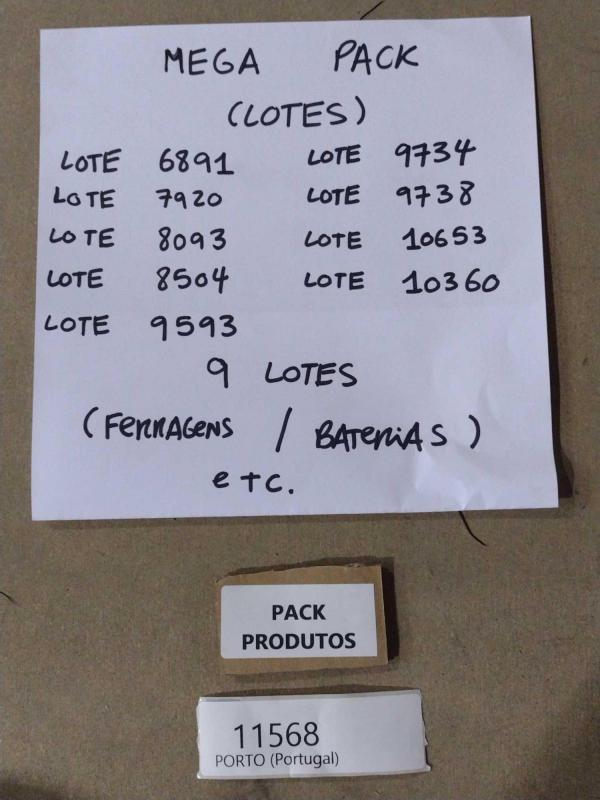 MEGA PACK
(LOTES)
LOTE 6891 LOTE 9734
LOTE 7920 LOTE 9738
LOTE 8093 LOTE 10653
LOTE 8504 LOTE 10360
LOTE 9593
9 LOTES
(FERRAGENS / BATERIAS)
etc.
PACK
PRODUTOS
11568
PORTO (Portugal)